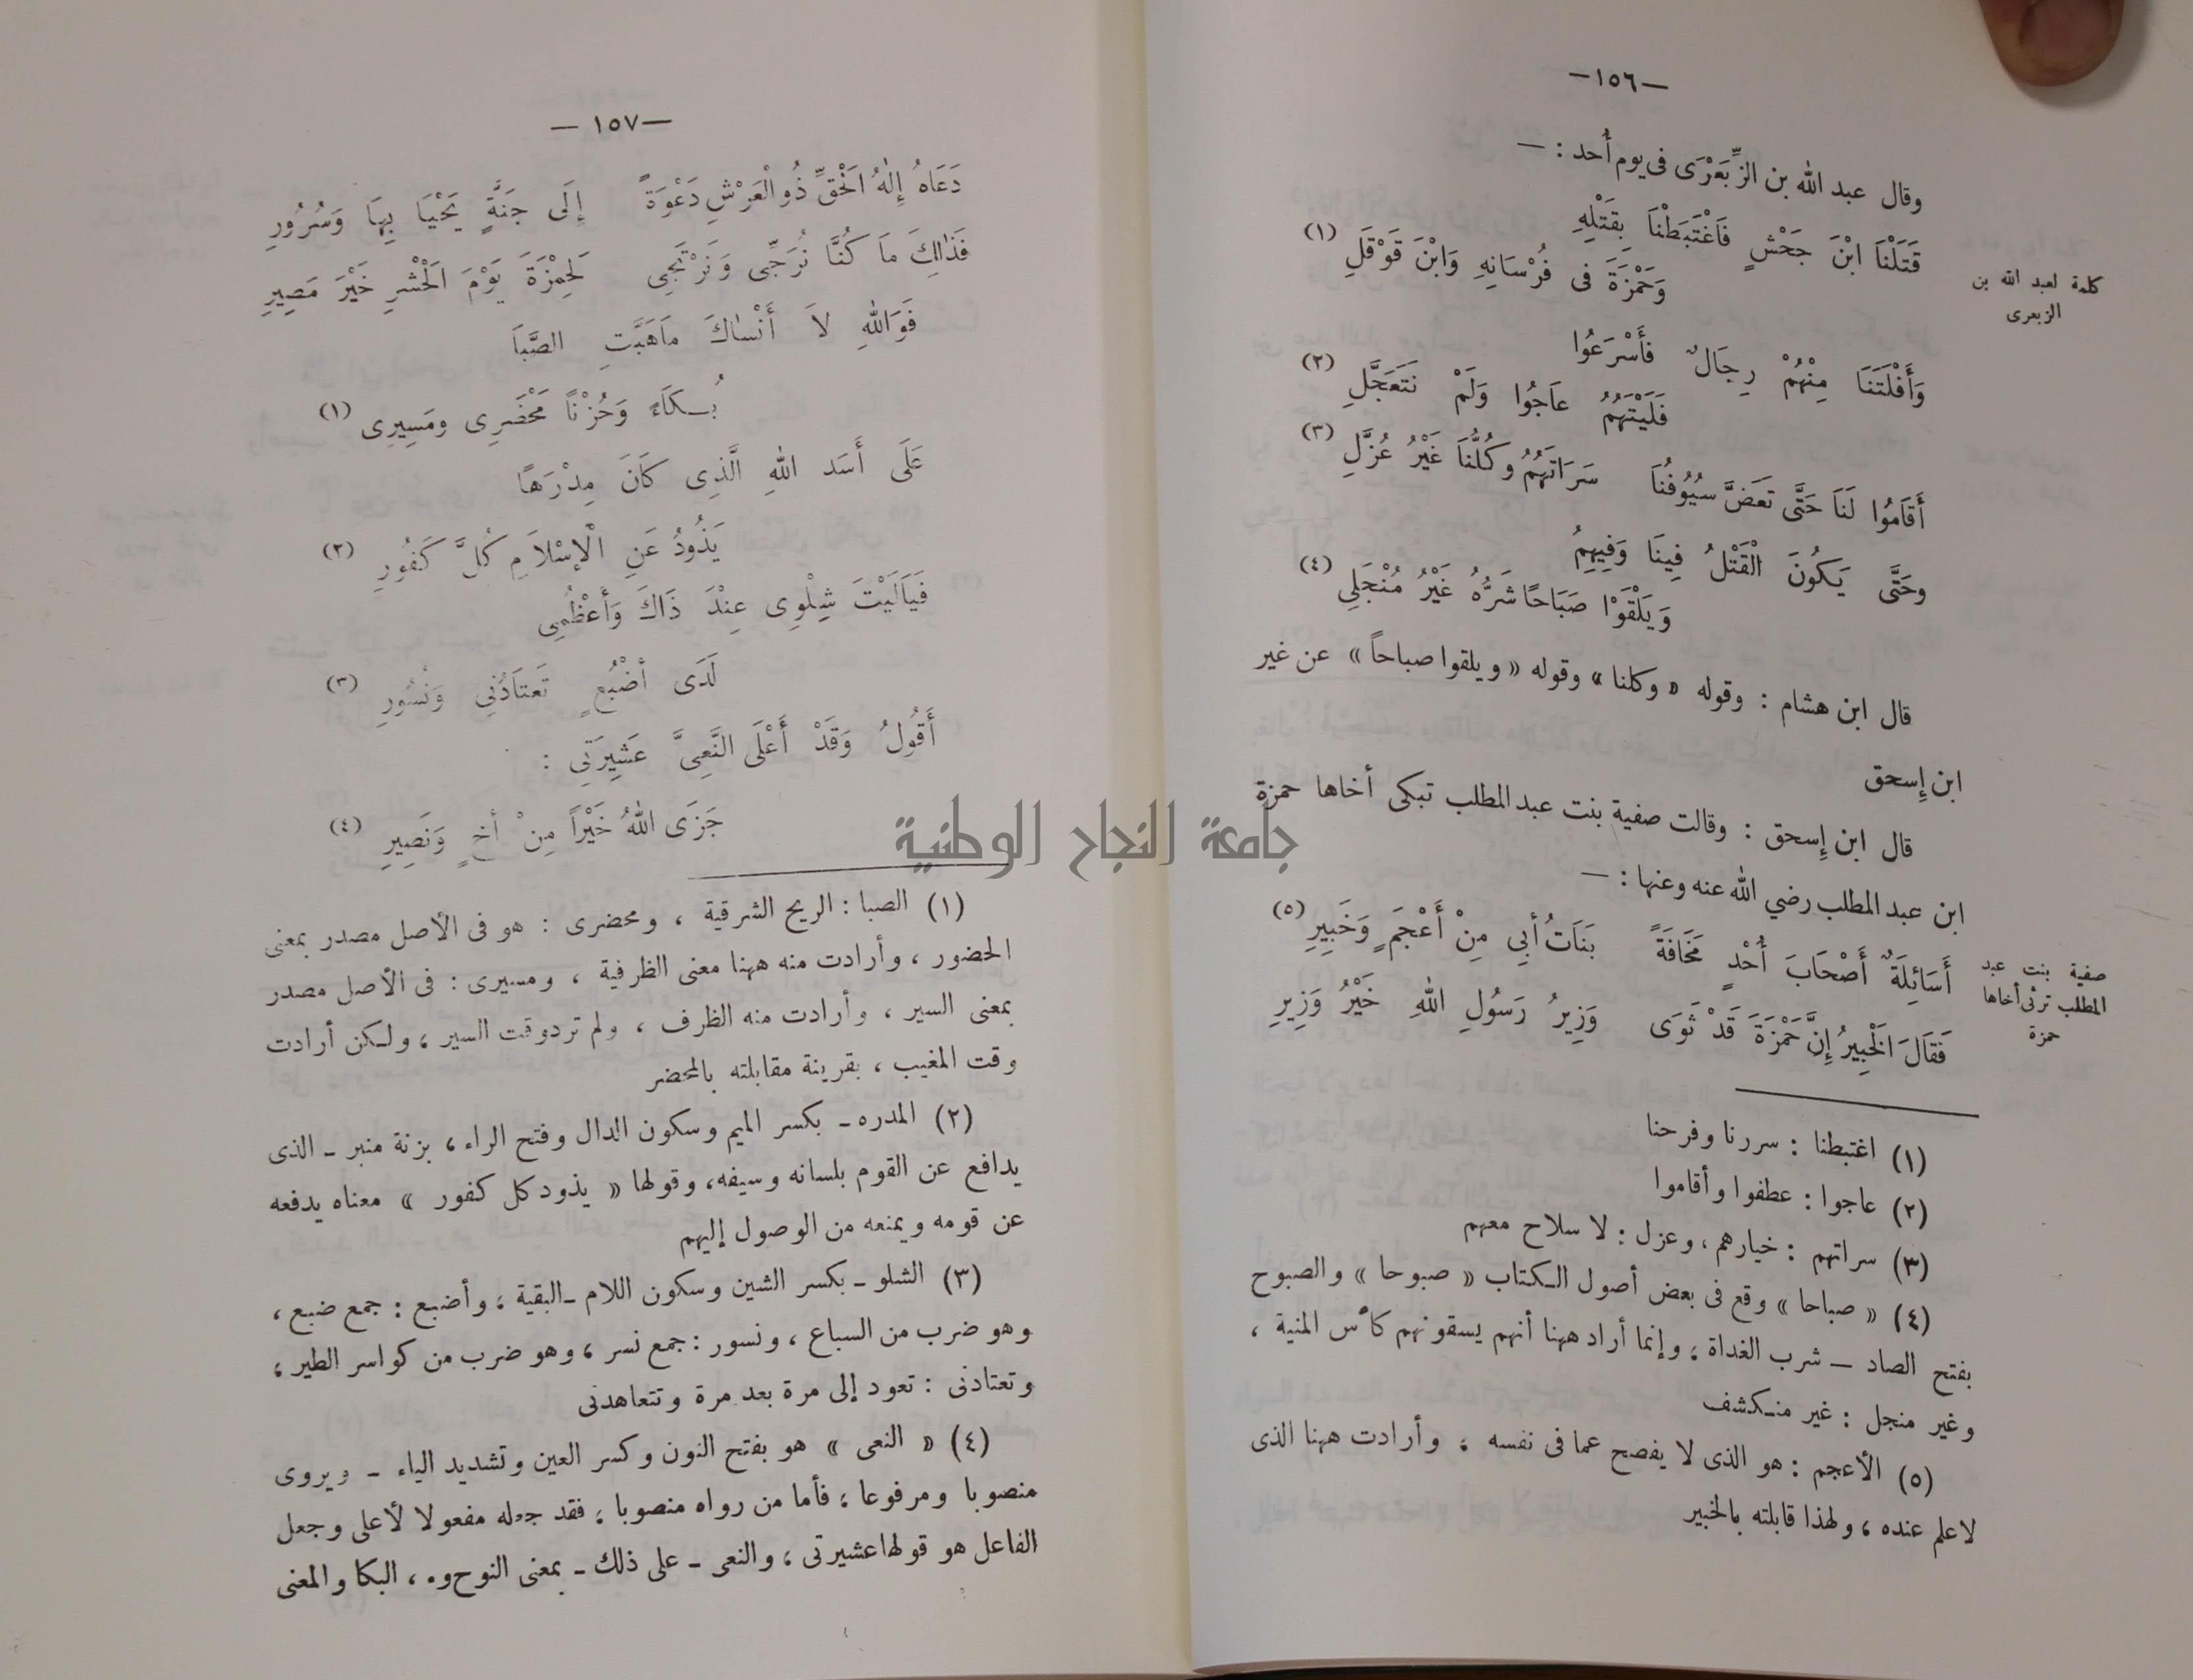 —١٥٦—
وقال عبد الله بن الزِّبَعْرَى فى يوم أُحد : —
قَتَلْنَا ابْنَ جَحْشٍ فَاغْتَبَطْنَا بِقَتْلِهِ
وَحَمْزَةَ فى فُرْسَانِهِ وَابْنَ قَوْقَلِ (١)
كلمة لعبد الله بن
الزبعرى
وَأَفْلَتَنَا مِنْهُمْ رِجَالٌ فَأَسْرَعُوا
فَلَيْتَهُمُ عَاجُوا وَلَمْ نَتَعَجَّلِ (٢)
أَقَامُوا لَنَا حَتَّى تَعَضَّ سُيُوفُنَا سَرَاتَهُمُ وكُلُّنَا غَيْرُ عُزَّلِ (٣)
وحَتَّى يَكُونَ الْقَتْلُ فِينَا وَفِيهِمُ
وَيَلْقَوْا صَبَاحًا شَرُّهُ غَيْرُ مُنْجَلِى (٤)
قال ابن هشام : وقوله « وكلنا » وقوله « ويلقوا صباحاً » عن غير
ابن إِسحق
قال ابن إِسحق : وقالت صفية بنت عبد المطلب تبكى أخاها حمزة
ابن عبد المطلب رضي الله عنه وعنها : —
أَسَائِلَةٌ أَصْحَابَ أُحْدٍ مَخَافَةً بَنَاتُ أبِى مِنْ أَعْجَمٍ وَخَبِيرِ (٥)
صفية بنت عبد
المطلب ترثى أخاها
حمزة
فَقَالَ الْخَبِيرُ إِنَّ حَمْزَةَ قَدْ ثَوَى وَزِيرُ رَسُولِ اللهِ خَيْرُ وَزِيرِ
(١) اغتبطنا : سررنا وفرحنا
(٢) عاجوا : عطفوا وأقاموا
(٣) سراتهم : خيارهم ، وعزل : لا سلاح معهم
(٤) « صباحا » وقع فى بعض أصول الكتاب « صبوحا » والصبوح
بفتح الصاد — شرب الغداة ، وإنما أراد ههنا أنهم يسقونهم كأس المنية ،
وغير منجل : غير منكشف
(٥) الأعجم : هو الذى لا يفصح عما فى نفسه ، وأرادت ههنا الذى
لا علم عنده ، ولهذا قابلته بالخبير
— ١٥٧ —
دَعَاهُ إِلٰهُ الْحَقِّ ذُو الْعَرْشِ دَعْوَةً إِلَى جَنَّةٍ يَحْيَا بِهَا وَسُرُورِ
فَذٰلِكَ مَا كُنَّا نُرَجِّى وَنَرْتَجِى لِحَمْزَةَ يَوْمَ الْحَشْرِ خَيْرَ مَصِيرِ
فَوَاللهِ لاَ أَنْسَاكَ مَا هَبَّتِ الصَّبَا
بُكَاءً وَحُزْناً مَحْضَرِى ومَسِيرِى (١)
عَلَى أَسَد اللهِ الَّذِى كَانَ مِدْرَهًا
يَذُودُ عَنِ الْإِسْلاَمِ كُلَّ كَفُورِ (٢)
فَيَالَيْتَ شِلْوِى عِنْدَ ذَاكَ وَأَعْظُمِى
لَدَى أضْبُعٍ تَعتَادُنِى وَنُسُورِ (٣)
أَقُولُ وَقَدْ أَعْلَى النَّعِىَّ عَشِيرَتِى :
جَزَى اللهُ خَيْراً مِنْ أخٍ وَنَصِيرِ (٤)
جامعة النجاح الوطنية
(١) الصبا : الريح الشرقية ، ومحضرى : هو فى الأصل مصدر بمعنى
الحضور ، وأرادت منه ههنا معنى الظرفية ، ومسيرى : فى الأصل مصدر
بمعنى السير ، وأرادت منه الظرف ، ولم ترد وقت السير ، ولكن أرادت
وقت المغيب ، بقرينة مقابلته بالمحضر
(٢) المدره ـ بكسر الميم وسكون الدال وفتح الراء ، بزنة منبر ـ الذى
يدافع عن القوم بلسانه وسيفه ، وقولها « يذود كل كفور » معناه يدفعه
عن قومه ويمنعه من الوصول إليهم
(٣) الشلو ـ بكسر الشين وسكون اللام ـ البقية ، وأضبع : جمع ضبع ،
وهو ضرب من السباع ، ونسور : جمع نسر ، وهو ضرب من كواسر الطير ،
وتعتادنى : تعود إلى مرة بعد مرة وتتعاهدنى
(٤) « النعى » هو بفتح النون وكسر العين وتشديد الياء ـ ويروى
منصوبا ومرفوعا ، فأما من رواه منصوبا ، فقد جعله مفعولا لأعلى وجعل
الفاعل هو قولها عشيرتى ، والنعى ـ على ذلك ـ بمعنى النوح و ، البكا والمعنى